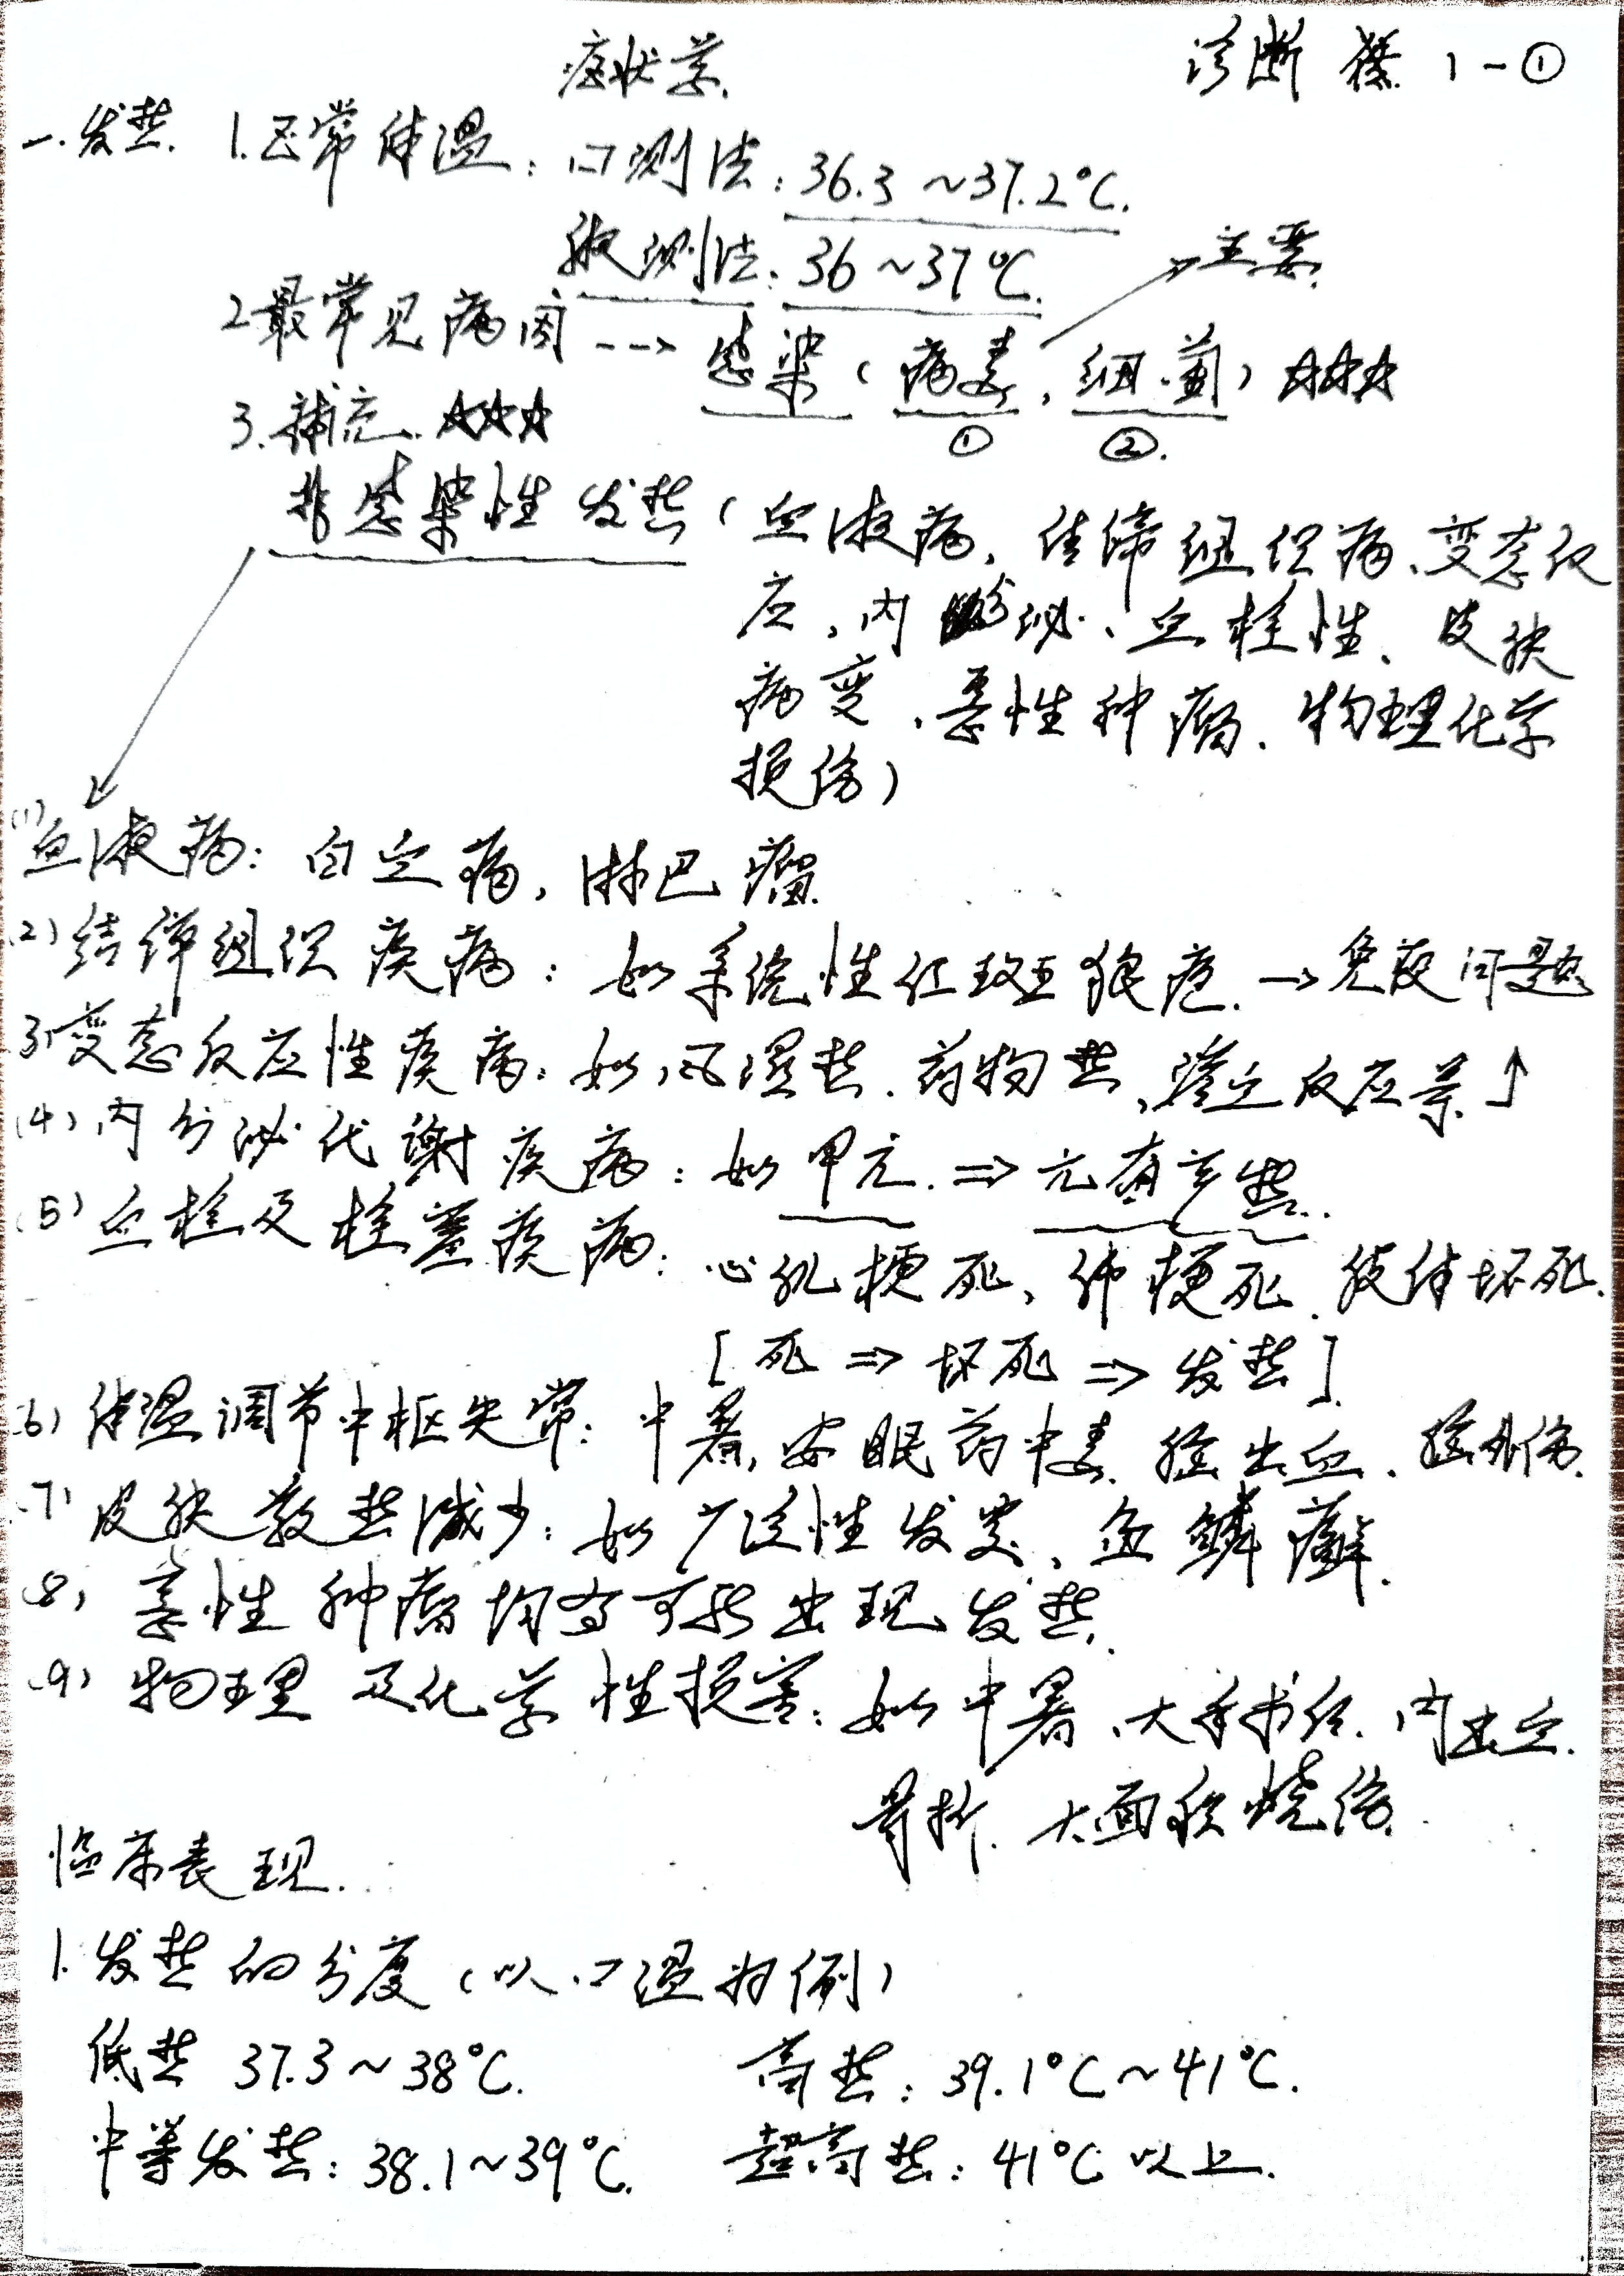 症状学. 诊断 1-①
一.发热. 1.正常体温:口测法:36.3~37.2℃.
腋测法:36~37℃. 主要.
2最常见病因 --→ 感染(病毒,细菌)☆☆☆
3.补充.☆☆☆ ① ②.
非感染性发热(血液病,结缔组织病、变态反
应,内分泌、血栓性、皮肤
病变,恶性肿瘤、物理化学
损伤)
(1)血液病:白血病,淋巴瘤.
(2)结缔组织疾病:如系统性红斑狼疮.→免疫问题
(3)变态反应性疾病:如,风湿热.药物热、 反应等↑
(4)内分泌代谢疾病:如甲亢.⇒亢奋产热.
(5)血栓及栓塞疾病:心肌梗死、肺梗死、肢体坏死.
[死⇒坏死⇒发热].
(6)体温调节中枢失常:中暑,安眠药中毒.脑出血、脑外伤.
(7)皮肤散热减少:如广泛性 、鱼鳞癣.
(8)恶性肿瘤均有可能出现发热.
(9)物理及化学性损害:如中暑、大手术后.内出血.
骨折.大面积烧伤.
临床表现.
1.发热的分度(以口温为例)
低热 37.3~38℃. 高热:39.1℃~41℃.
中等发热:38.1~39℃. 超高热:41℃以上.